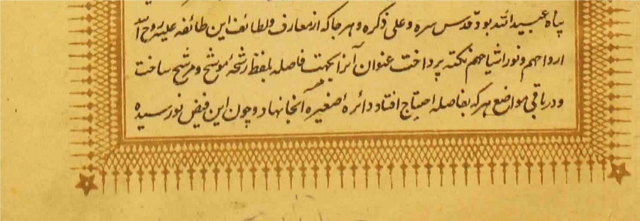 پناه عبیدالله بود قدس سره و علی ذکره و هر جا که از معارف و لطائف این طائفه علیه روح الله
ارواحهم و نور اشباحهم نکته پرداخت عنوان آنرا بجهت فاصله بلفظ رشحهٔ موشح و مرشح ساخت
و در باقی مواضع هر که بفاصله احتیاج افتاد دائرهٔ صغیره آنجا نهاد و چون این فیض نو رسیده